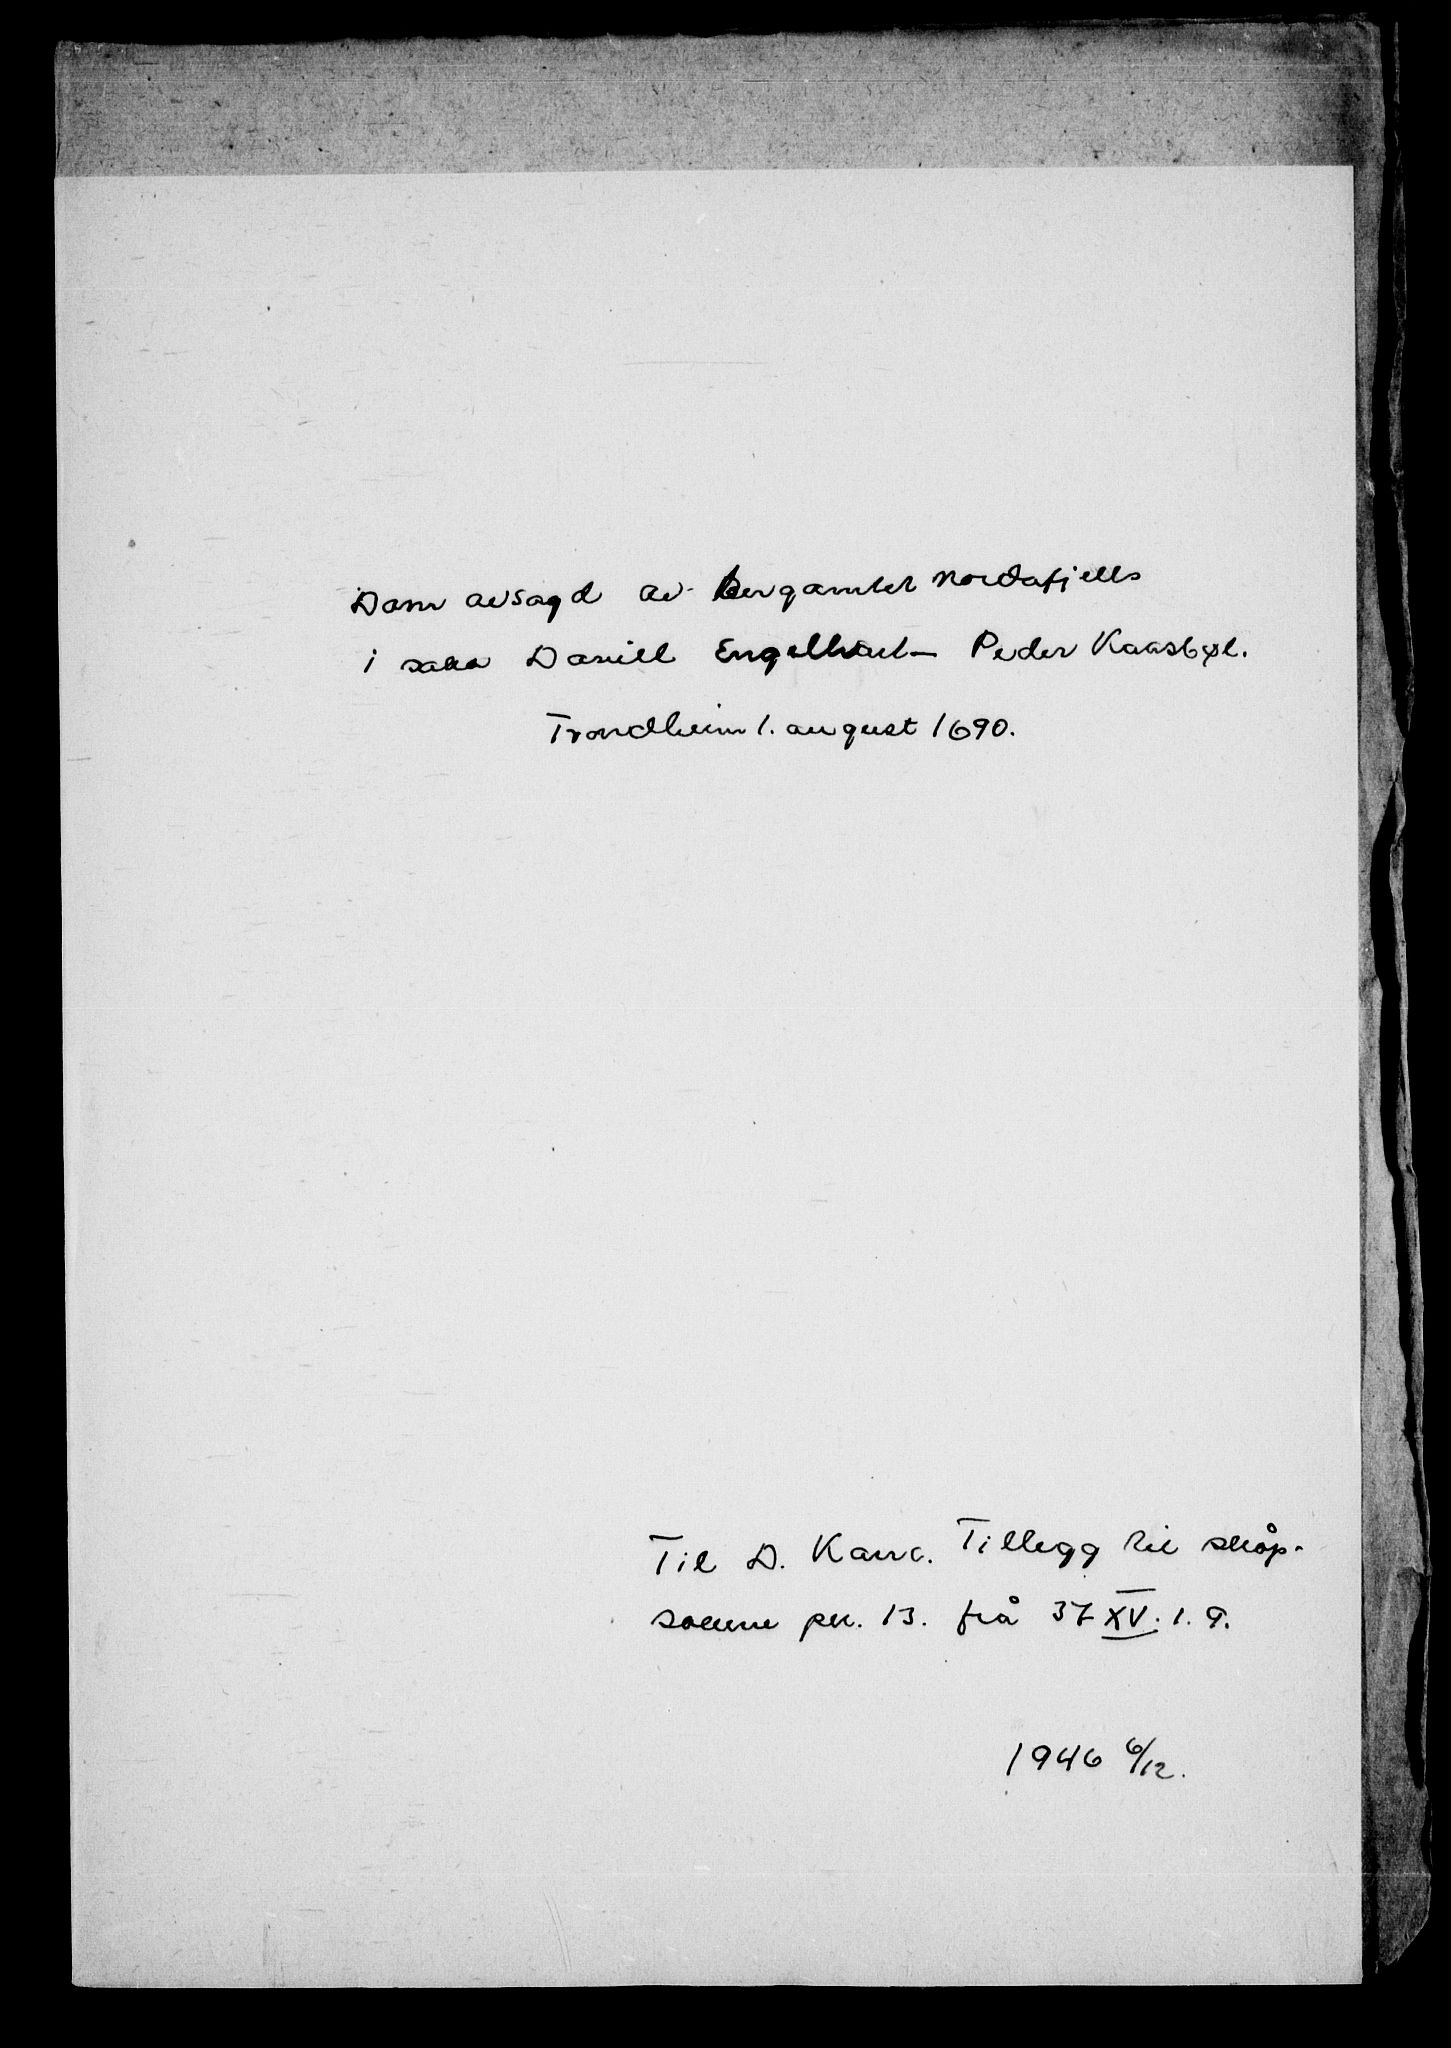 Dom avsagd av Bergamtet nordafjells
i saka Daniell Engellhart – Peder Kaasbøl.
Trondheim 1. august 1690.
Til D. Kanc. Tillegg til skåp-
sakene pk. 13. frå 37 XV. 1. 9.
1946 6/12.